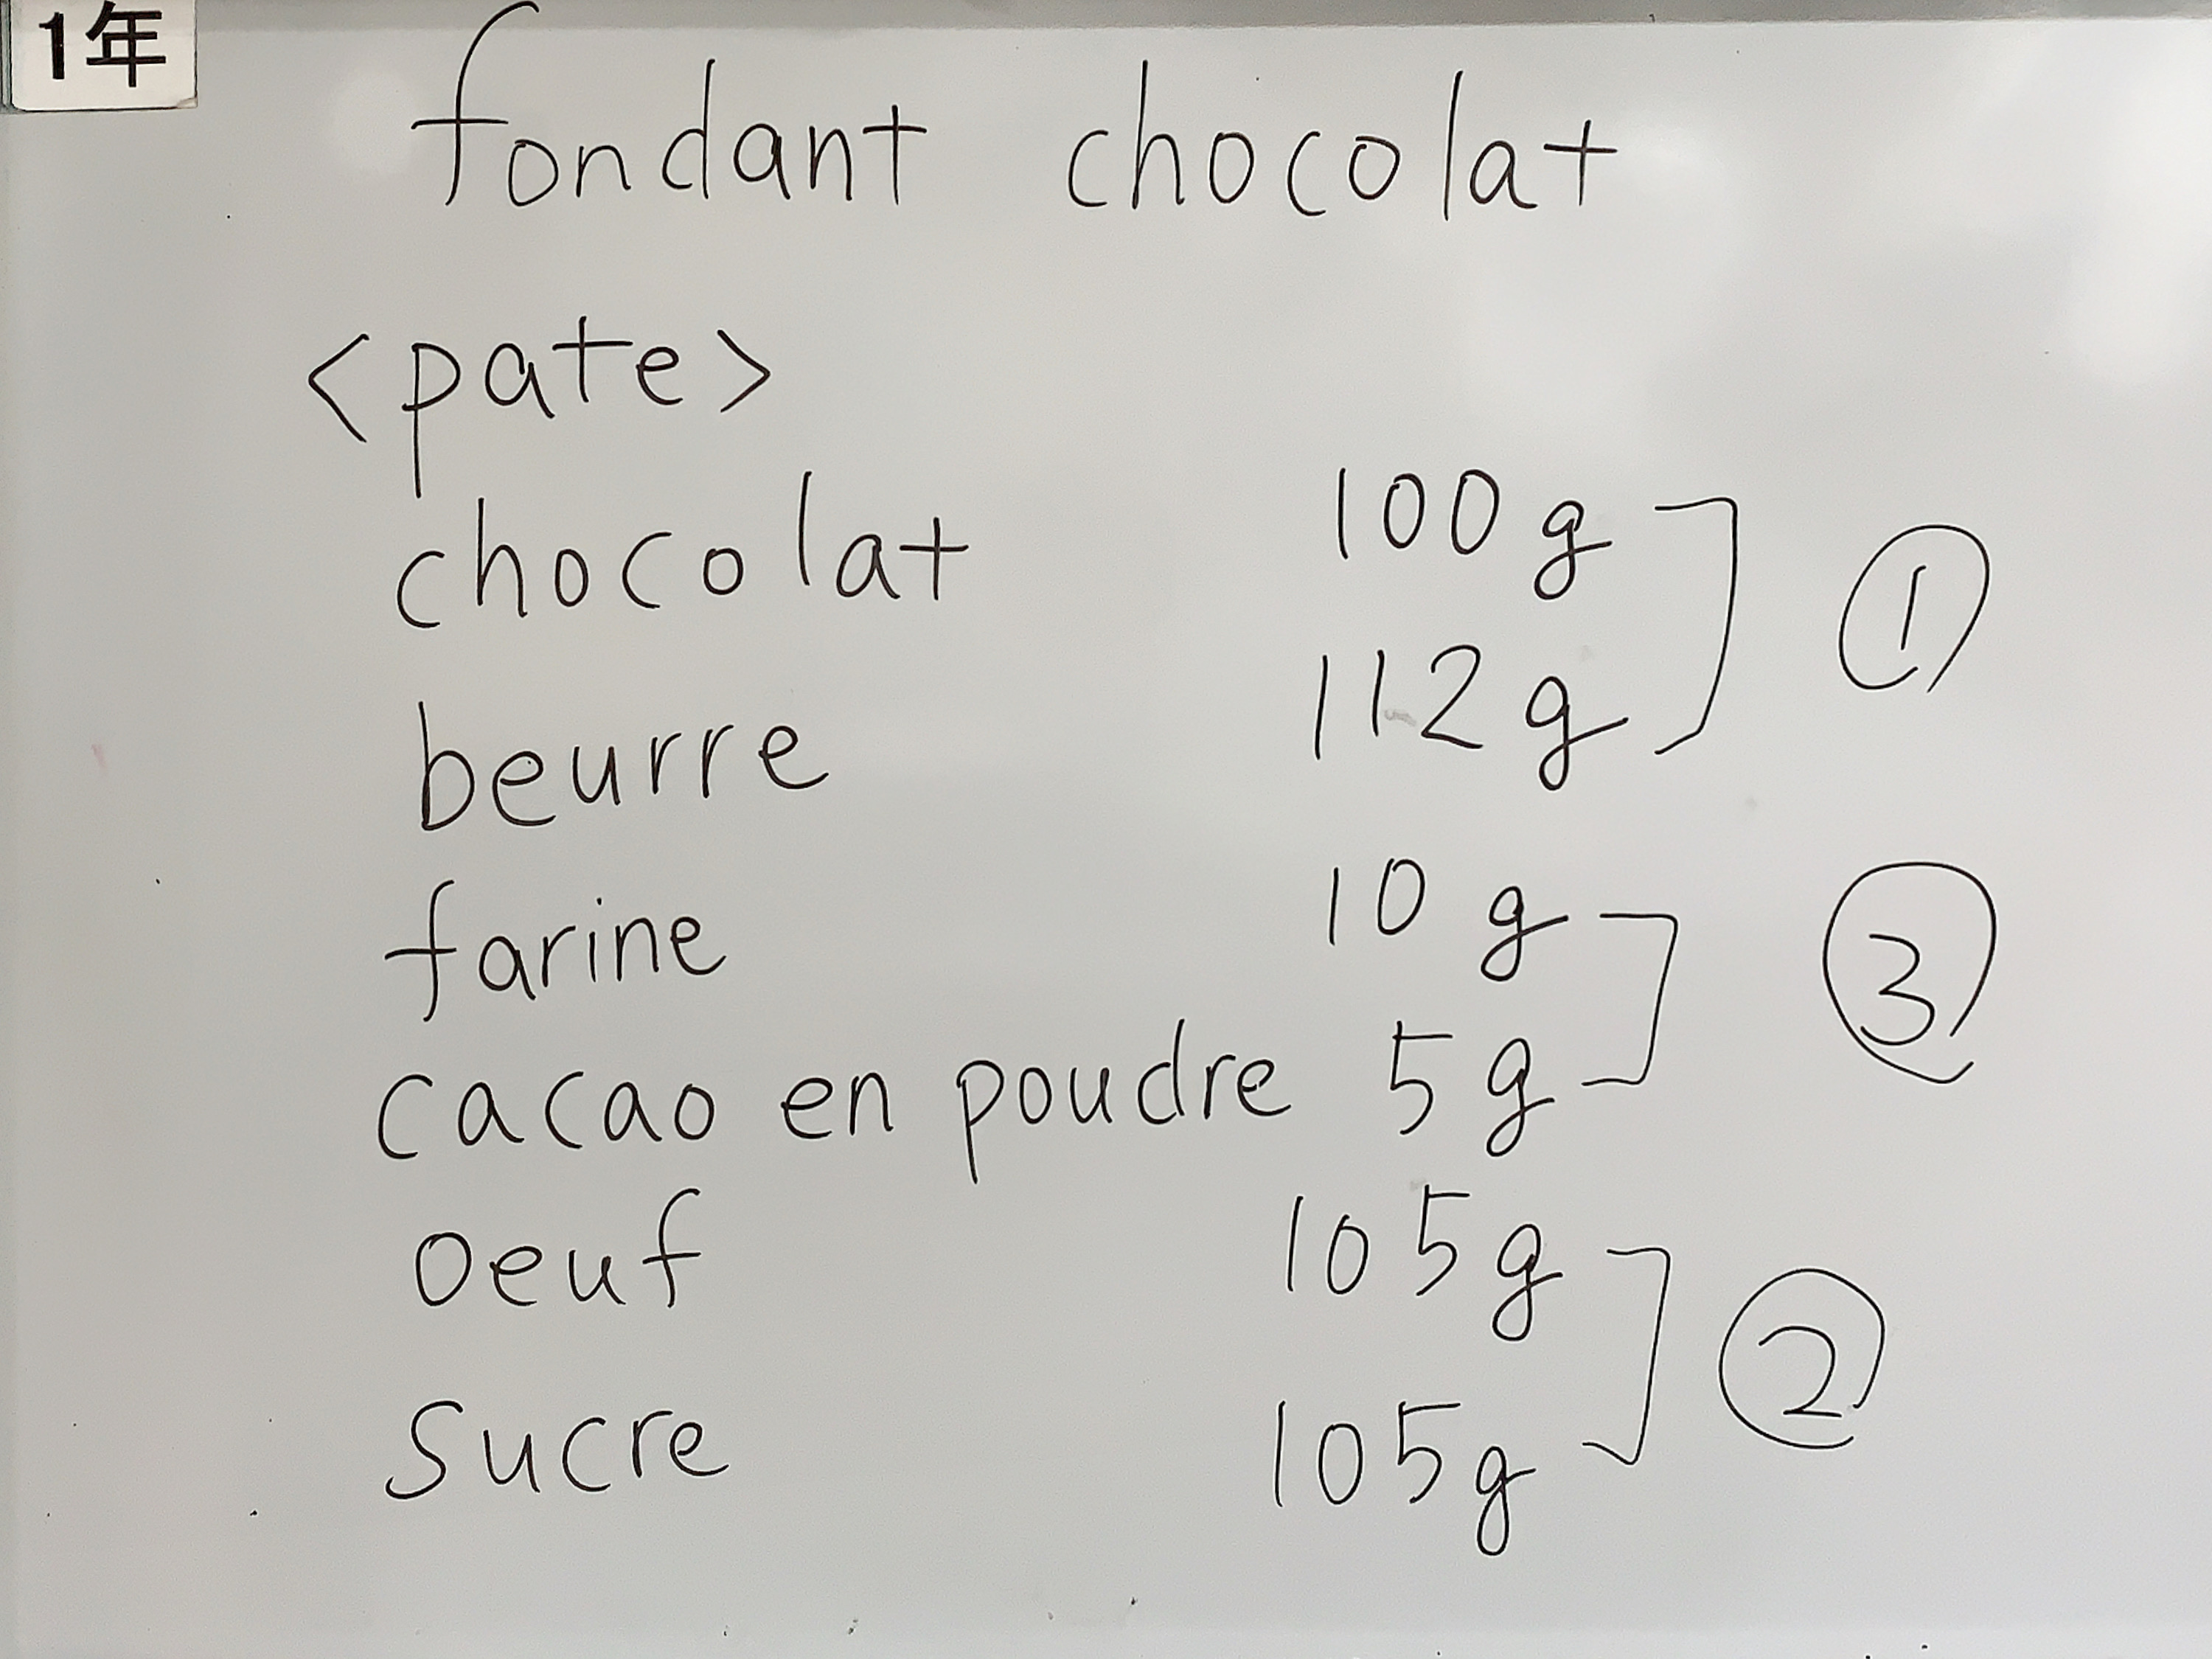 1年
fondant chocolat
<pate>
chocolat 100g ①
beurre 112g
farine 10g ③
cacao en poudre 5g
oeuf 105g ②
sucre 105g